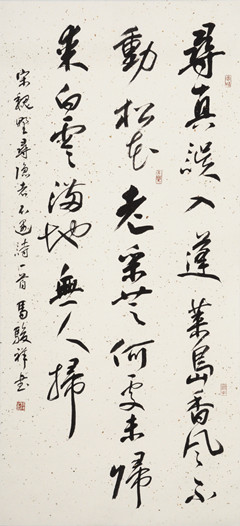 尋真誤入蓬萊島香風不
動松花老采芝何處未歸
來白雲滿地無人掃
宋魏野尋隱者不遇詩一首馬駿祥書